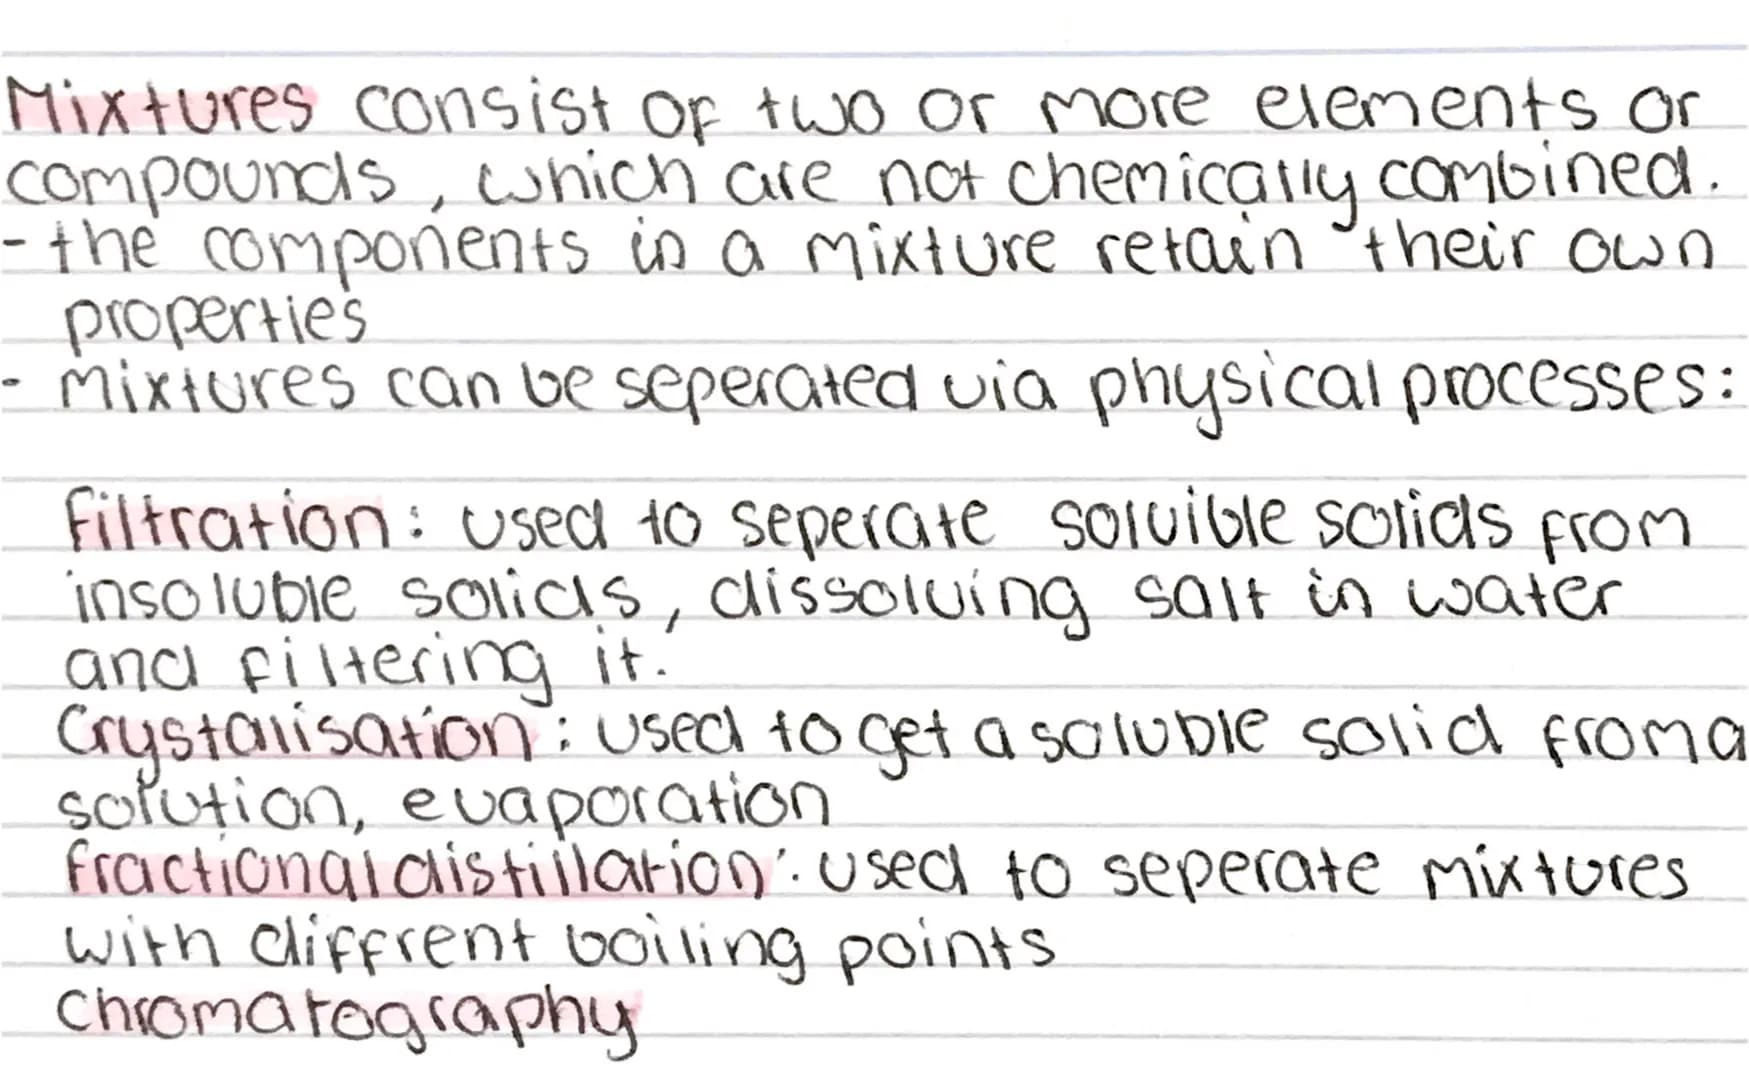 Mixtures consist of two or more elements or
compounds, which are not chemically combined.
- the components in a mixture retain their own
properties
- Mixtures can be seperated via physical processes:
Filtration: used to seperate soluible solids from
insoluble solids, dissolving salt in water
and filtering it.
Crystalisation: used to get a soluble solid from a
solution, evaporation
Fractional distillation: used to seperate mixtures
with diffrent boiling points
Chromatography